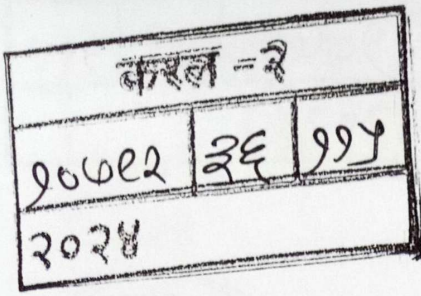 करल - २
१०७९२ ३६ ११५
२०२४